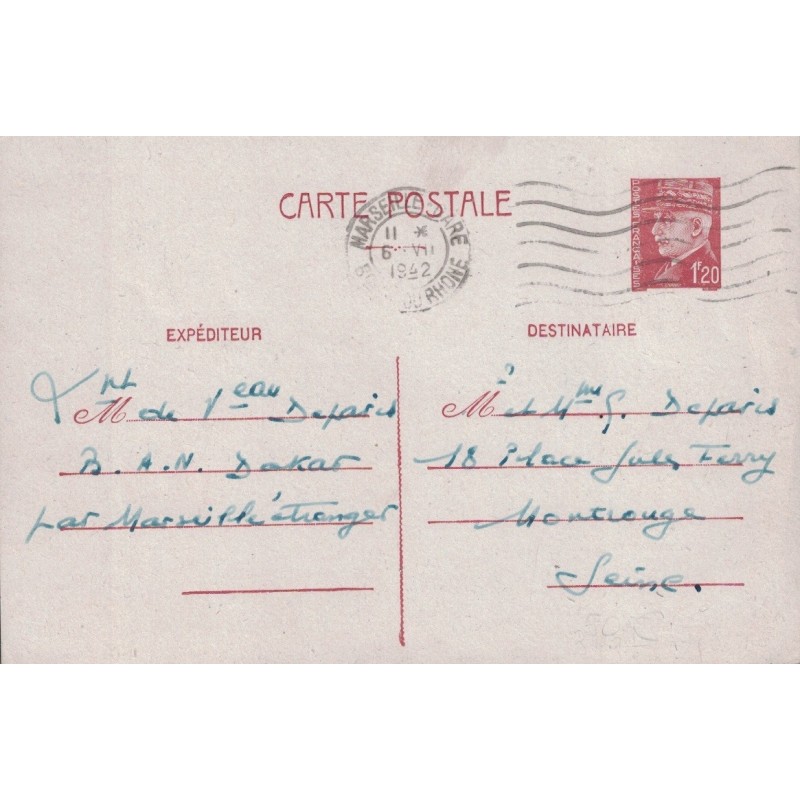 CARTE POSTALE
MARSEILLE-GARE
11 *
6 VII
1942
DU RHONE
POSTES FRANÇAISES
1F20
EXPÉDITEUR
DESTINATAIRE
M de Veau Deparis
B.A.N. Dakar
par Marseille étranger
M et Mme G. Deparis
18 Place Jules Ferry
Montrouge
Seine.